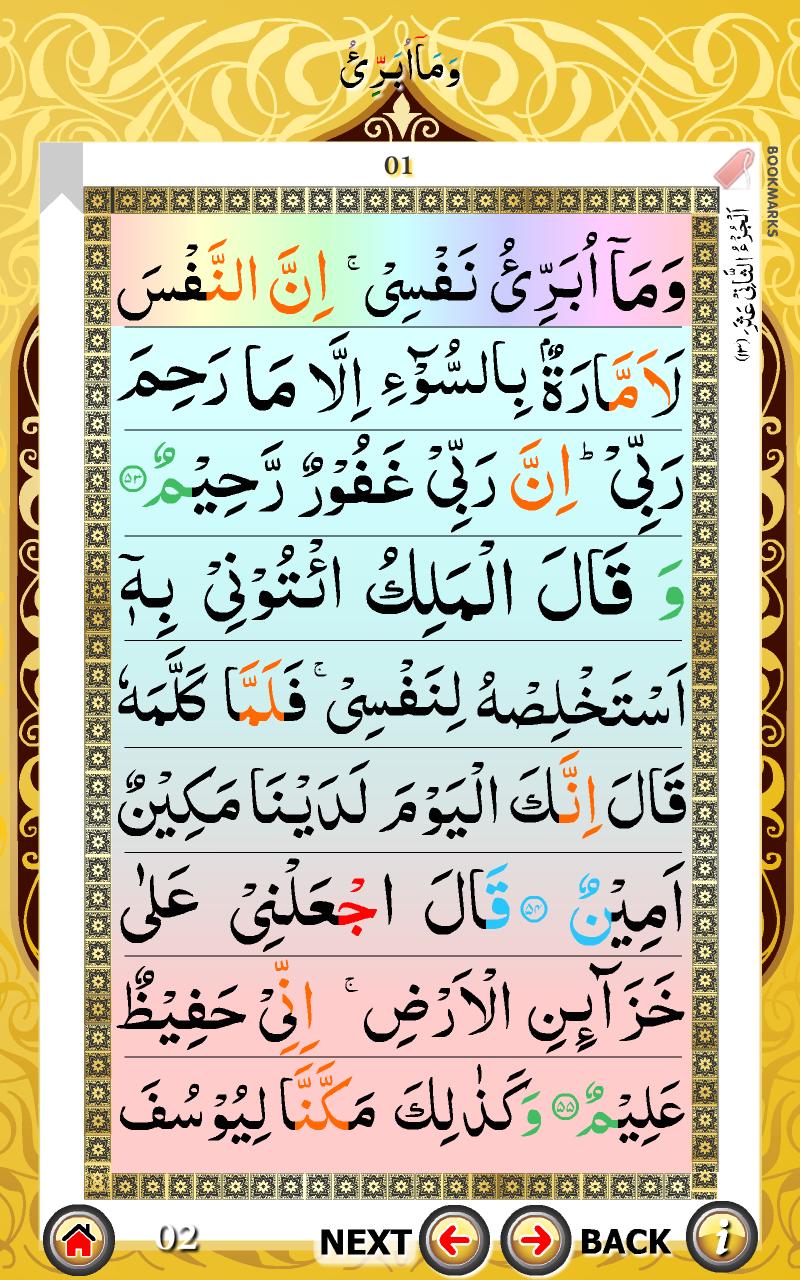 وَمَاۤ اُبَرِّئُ
01
BOOKMARKS
وَمَاۤ اُبَرِّئُ نَفْسِیْ ۚ اِنَّ النَّفْسَ
لَاَمَّارَةٌۢ بِالسُّوْٓءِ اِلَّا مَا رَحِمَ
رَبِّیْ ؕ اِنَّ رَبِّیْ غَفُوْرٌ رَّحِیْمٌ ۵۳
وَ قَالَ الْمَلِكُ ائْتُوْنِیْ بِهٖۤ
اَسْتَخْلِصْهُ لِنَفْسِیْ ۚ فَلَمَّا كَلَّمَهٗ
قَالَ اِنَّكَ الْیَوْمَ لَدَیْنَا مَكِیْنٌ
اَمِیْنٌ ۵۴ قَالَ اجْعَلْنِیْ عَلٰی
خَزَآىِٕنِ الْاَرْضِ ۚ اِنِّیْ حَفِیْظٌ
عَلِیْمٌ ۵۵ وَكَذٰلِكَ مَكَّنَّا لِیُوْسُفَ
02 NEXT BACK i